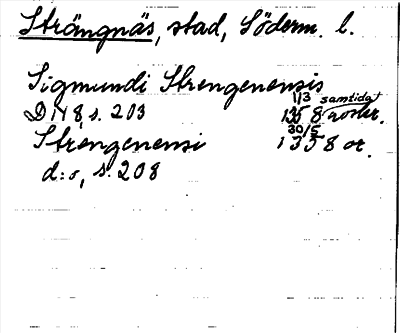 Strängnäs, stad, Söderm. l.
Sigmundi Strengenensis
1/3 samtida
DN 8, s. 203 1358 avskr.
30/5
Strengenensi 1358 or.
d:o, s. 208